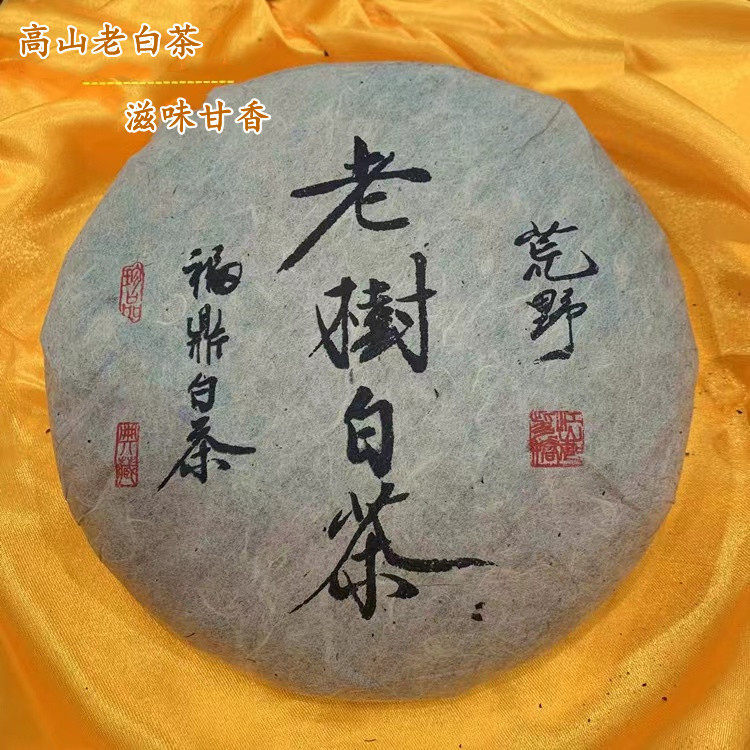 高山老白茶
滋味甘香
荒野
老樹白茶
福鼎白茶
珍品
典藏